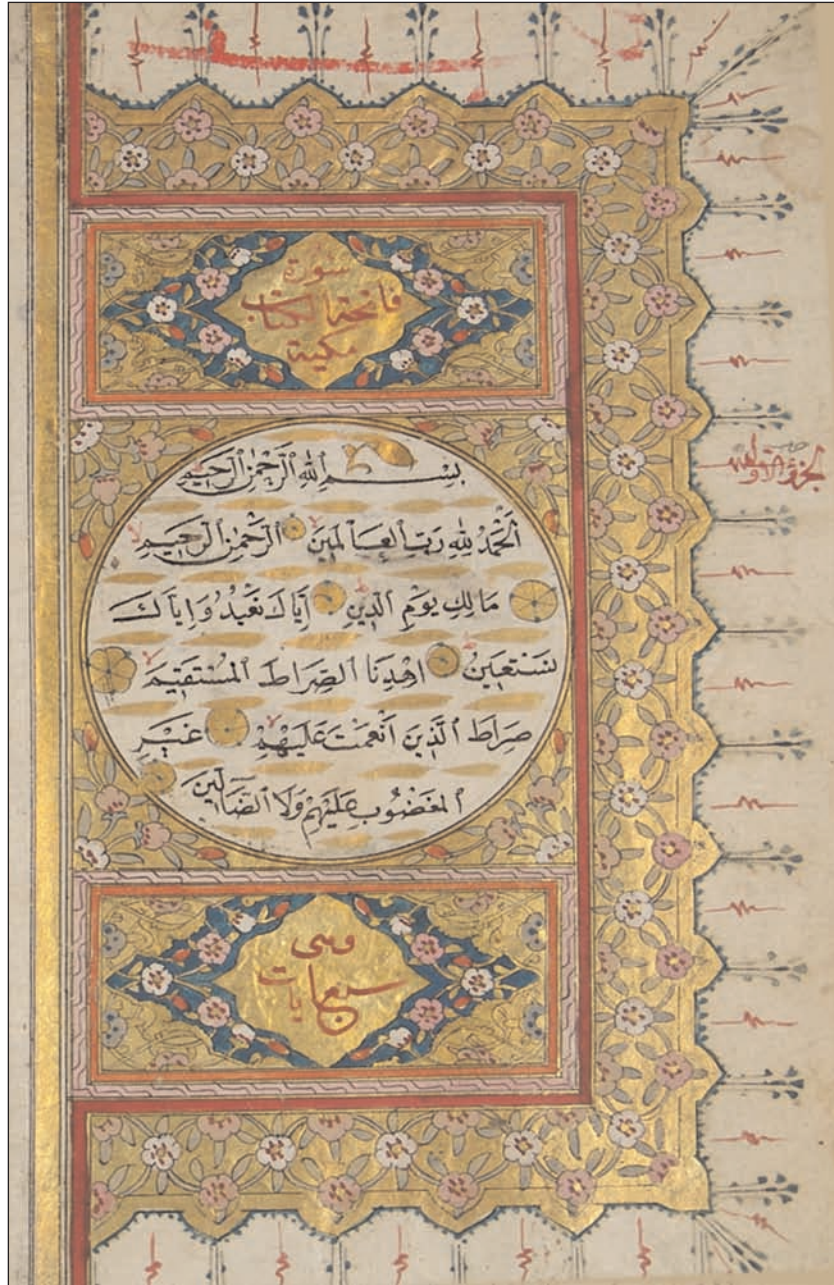 سورة
فاتحة الكتاب
مكية
بِسْمِ ٱللهِ ٱلرَّحْمٰنِ ٱلرَّحِيمِ
اَلْحَمْدُ لِلهِ رَبِّ ٱلْعَالَمِينَ ٱلرَّحْمٰنِ ٱلرَّحِيمِ
مَالِكِ يَوْمِ ٱلدِّينِ اِيَّاكَ نَعْبُدُ وَاِيَّاكَ
نَسْتَعِينُ اهْدِنَا ٱلصِّرَاطَ ٱلْمُسْتَقِيمَ
صِرَاطَ ٱلَّذِينَ اَنْعَمْتَ عَلَيْهِمْ غَيْرِ
ٱلْمَغْضُوبِ عَلَيْهِمْ وَلَا ٱلضَّآلِّينَ
وهى
سبع ايات
الجزؤ الاول